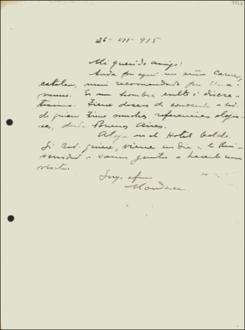 26-VII-915
Mi querido amigo:
Anda por aquí un señor
catalán, muy recomendado por Una-
muno. Es un hombre culto i discre-
tísimo. Tiene deseos de conocerle a Ud.
de quien tiene muchas referencias
desde Buenos Aires.
Aloja en el Hotel
Si Ud. quiere, viene un día a la Uni-
versidad i vamos juntos a hacerle una
visita.
Suyo afmo